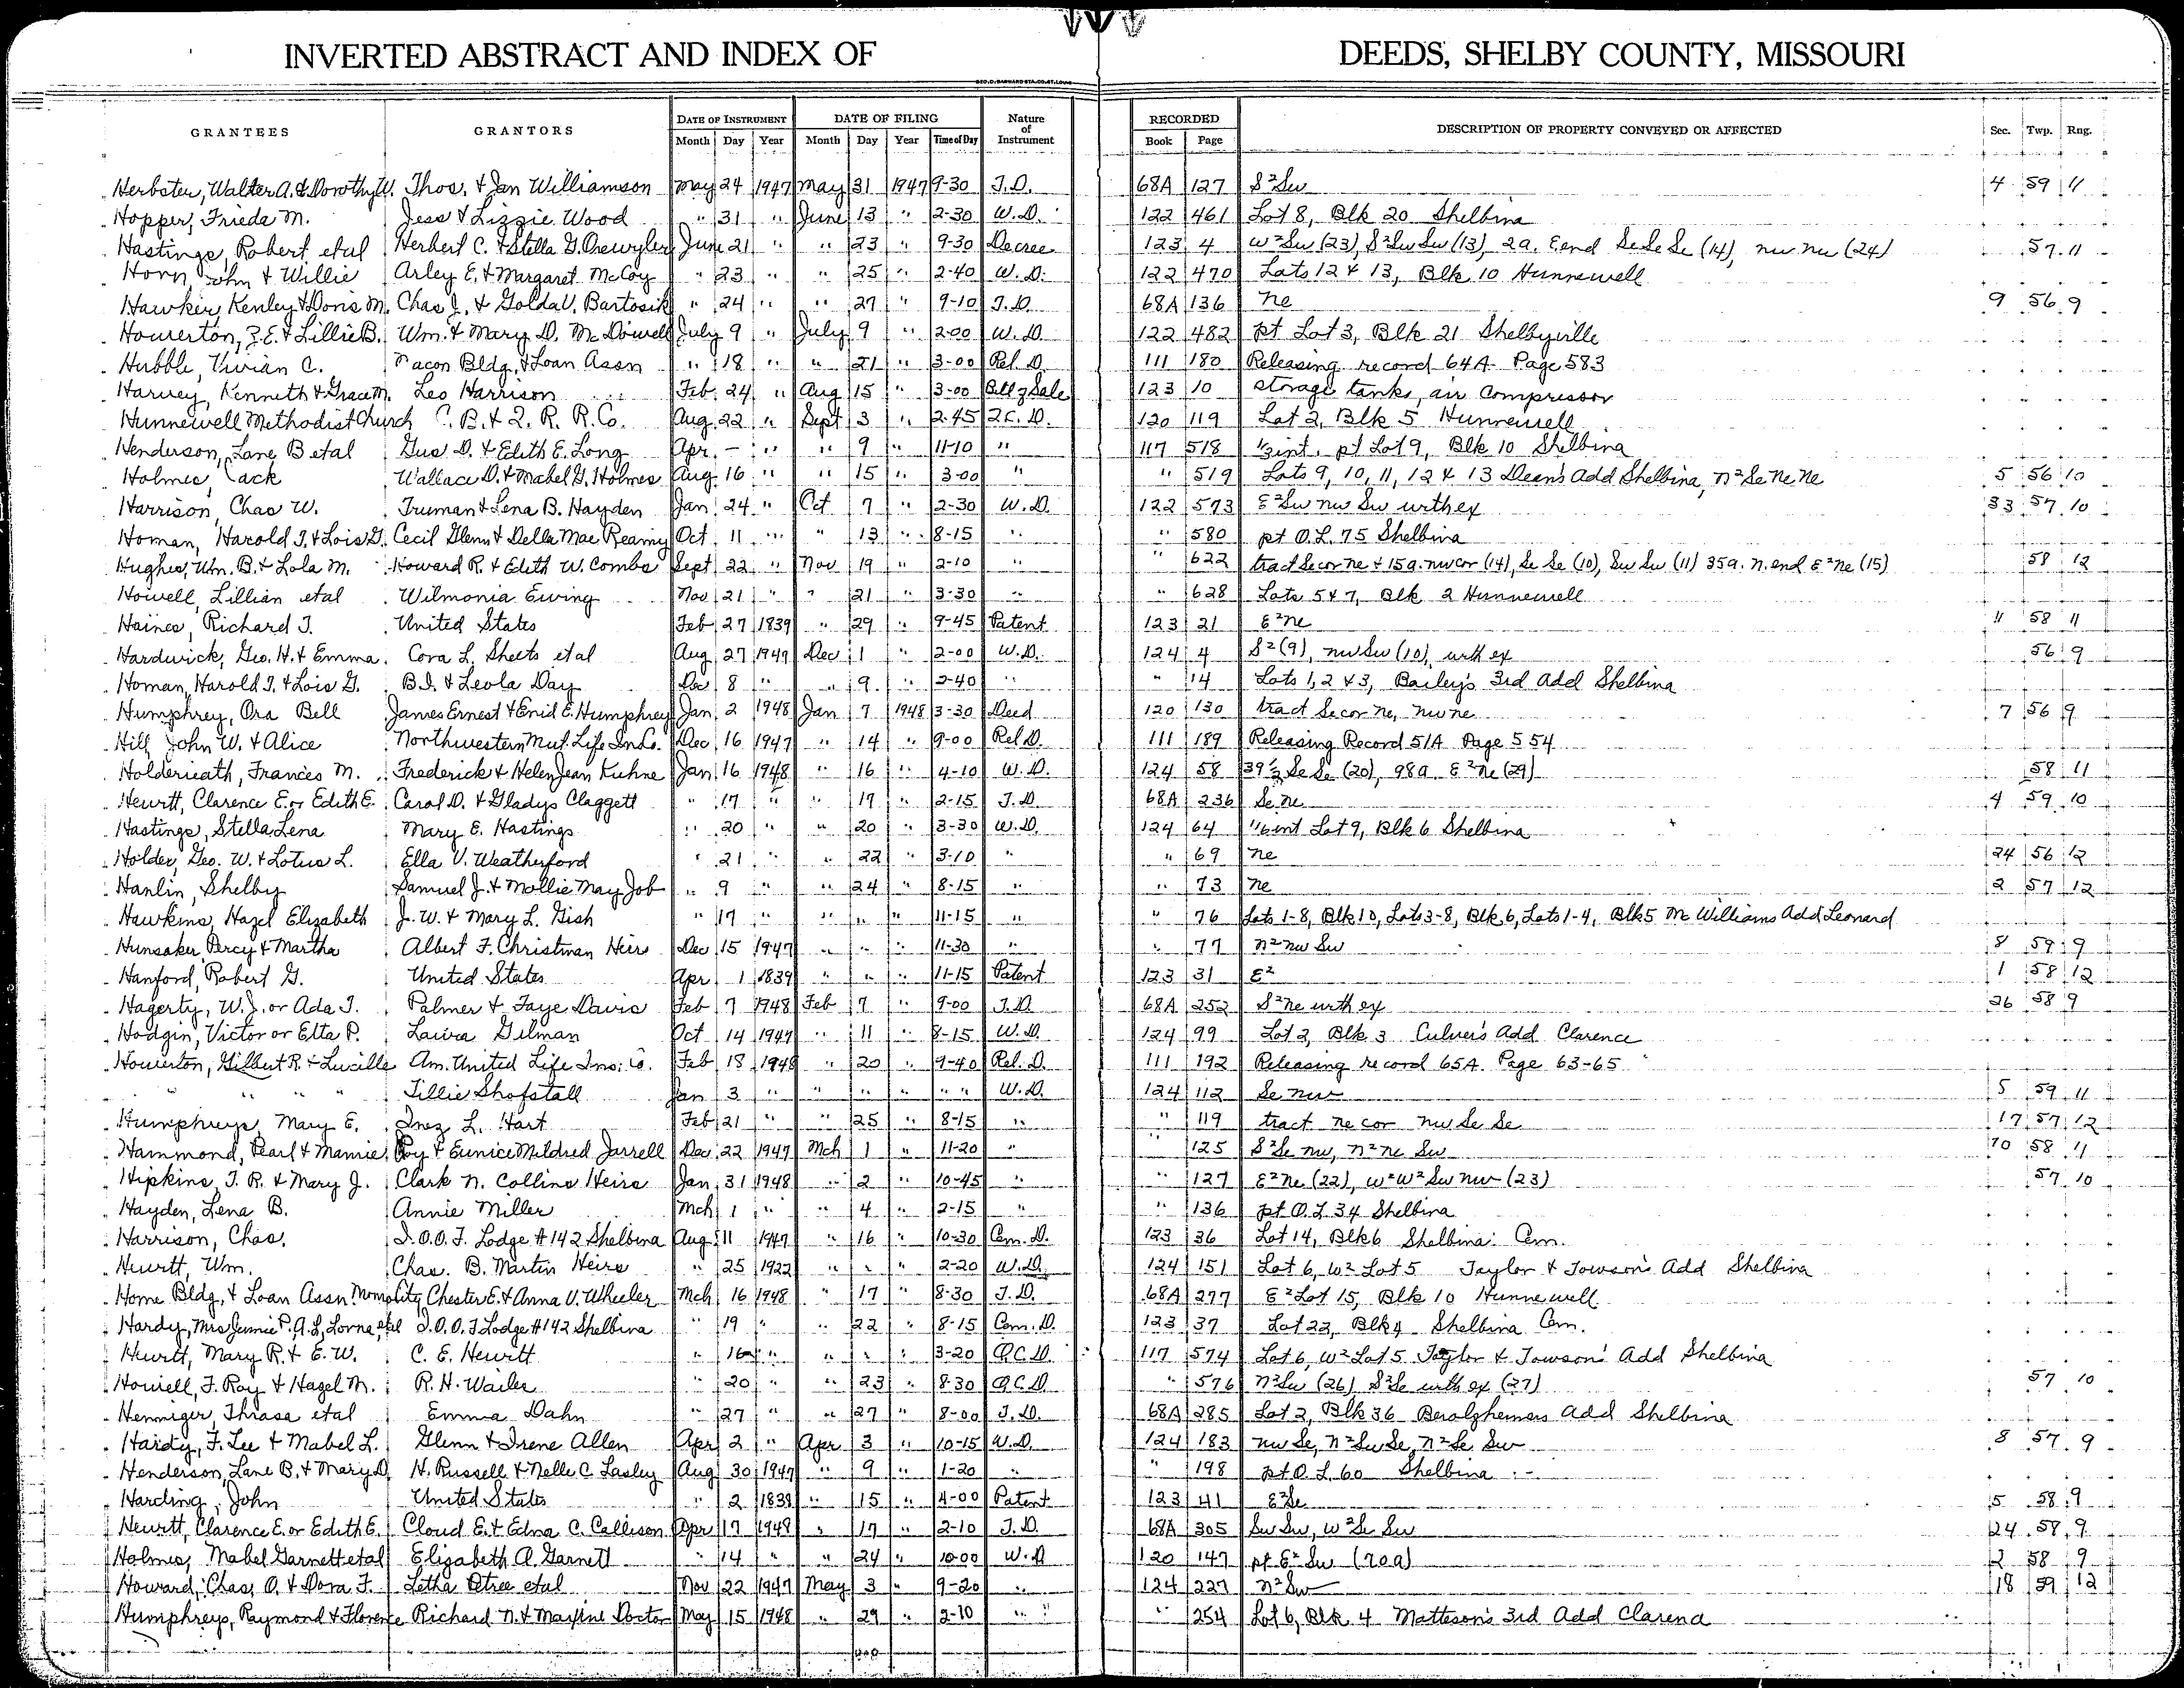 INVERTED ABSTRACT AND INDEX OF DEEDS, SHELBY COUNTY, MISSOURI
GEO. D. BARNARD STA. CO. ST. LOUIS
GRANTEES GRANTORS DATE OF INSTRUMENT DATE OF FILING Nature of Instrument RECORDED DESCRIPTION OF PROPERTY CONVEYED OR AFFECTED Sec. Twp. Rng.
Month Day Year Month Day Year Time of Day Book Page
Herbster, Walter A. & Dorothy W. Thos. & Jan Williamson May 24 1947 May 31 1947 9-30 T.D. 68A 127 S²Sw 4 59 11
Hopper, Frieda M. Jess & Lizzie Wood " 31 " June 13 " 2-30 W.D. 122 461 Lot 8, Blk 20 Shelbina
Hastings, Robert etal Herbert C. & Stella G. Drewyler June 21 " " 23 " 9-30 Decree 123 4 W²Sw (23), S²SwSw (13), 2a. E end SeSeSe (14), nw nw (24) 57 11
Horn, John & Willie Arley E. & Margaret McCoy " 23 " " 25 " 2-40 W.D. 122 470 Lots 12 & 13, Blk 10 Hunnewell
Hawker, Kenley & Doris M. Chas J. & Golda V. Bartosik " 24 " " 27 " 9-10 T.D. 68A 136 ne 9 56 9
Howerton, Z.E. & Lillie B. Wm. & Mary D. McDowell July 9 " July 9 " 2-00 W.D. 122 482 pt Lot 3, Blk 21 Shelbyville
Hubble, Vivian C. Macon Bldg. & Loan Assn " 18 " " 21 " 3-00 Rel. D. 111 180 Releasing record 64A Page 583
Harvey, Kenneth & Grace M. Leo Harrison Feb. 24 " Aug 15 " 3-00 Bill of Sale 123 10 storage tanks, air compressor
Hunnewell Methodist Church C. B. & Q. R. R. Co. Aug. 22 " Sept 3 " 2-45 Q.C.D. 120 119 Lot 2, Blk 5 Hunnewell
Henderson, Lane B etal Gus D. & Edith E. Long Apr. - " " 9 " 11-10 " 117 518 ½ int. pt Lot 9, Blk 10 Shelbina
Holmes, Jack Wallace D. & Mabel G. Holmes Aug. 16 " " 15 " 3-00 " " 519 Lots 9, 10, 11, 12 & 13 Dean's Add Shelbina, N²SeNeNe 5 56 10
Harrison, Chas W. Truman & Lena B. Hayden Jan 24 " Oct 7 " 2-30 W.D. 122 573 E²Sw nw Sw wrth ex 33 57 10
Homan, Harold T. & Lois G. Cecil Glenn & Della Mae Reamy Oct. 11 " " 13 " 8-15 " " 580 pt O.L. 75 Shelbina
Hughes, Wm. B. & Lola M. Howard R. & Edith W. Combs Sept 22 " Nov 19 " 2-10 " " 622 tract Secor ne & 15a. nwcor (14), Se Se (10), Sw Sw (11) 35a. n. end E²ne (15) 58 12
Howell, Lillian etal Wilmonia Ewing Nov 21 " " 21 " 3-30 " " 628 Lots 5 & 7, Blk 2 Hunnewell
Haines, Richard J. United States Feb 27 1839 " 29 " 9-45 Patent 123 21 E²ne 11 58 11
Hardwick, Geo. H. & Emma Cora L. Sheets etal Aug 27 1947 Dec 1 " 2-00 W.D. 124 4 S²(9), nwSw (10), wrth ex 56 9
Homan, Harold T. & Lois G. B.I. & Leola Day Dec 8 " " 9 " 2-40 " " 14 Lots 1, 2 & 3, Bailey's 3rd Add Shelbina
Humphrey, Ora Bell James Ernest & Enid E. Humphrey Jan 2 1948 Jan 7 1948 3-30 Deed 120 130 tract Secor ne, nw ne 7 56 9
Hill, John W. & Alice Northwestern Mut. Life Ins Co. Dec 16 1947 " 14 " 9-00 Rel D. 111 189 Releasing Record 51A Page 554
Holderieath, Frances M. Frederick & Helen Jean Kuhne Jan 16 1948 " 16 " 4-10 W.D. 124 58 39½ Se Se (20), 98a. E²Ne (29) 58 11
Hewitt, Clarence E. or Edith E. Carol D. & Gladys Claggett " 17 " " 17 " 2-15 T.D. 68A 236 Se ne 4 59 10
Hastings, Stella Lena Mary E. Hastings " 20 " " 20 " 3-30 W.D. 124 64 1/6 int Lot 9, Blk 6 Shelbina
Holder, Geo. W. & Lotus L. Ella V. Weatherford " 21 " " 22 " 3-10 " " 69 ne 24 56 12
Hanlin, Shelby Samuel J. & Mollie May Job " 9 " " 24 " 8-15 " " 73 ne 2 57 12
Hawkins, Hazel Elizabeth J. W. & Mary L. Gish " 17 " " " " 11-15 " " 76 Lots 1-8, Blk 10, Lots 3-8, Blk. 6, Lots 1-4, Blk 5 McWilliams Add Leonard
Hunsaker, Percy & Martha Albert F. Christman Heirs Dec 15 1947 " " " 11-30 " " 77 n² nw Sw 8 59 9
Hanford, Robert G. United States Apr 1 1839 " " " 11-15 Patent 123 31 E² 1 58 12
Hagerty, W. J. or Ada T. Palmer & Faye Davis Feb 7 1948 Feb 7 " 9-00 T.D. 68A 252 S²ne wrth ex 26 58 9
Hodgin, Victor or Etta P. Laura Gilman Oct 14 1947 " 11 " 8-15 W.D. 124 99 Lot 2, Blk 3 Culver's Add Clarence
Howerton, Gilbert R. & Lucille Am. United Life Ins. Co. Feb 18 1948 " 20 " 9-40 Rel. D. 111 192 Releasing record 65A Page 63-65
" " " " Tillie Shofstall Jan 3 " " " " " " W.D. 124 112 Se nw 5 59 11
Humphreys, Mary E. Inez L. Hart Feb 21 " " 25 " 8-15 " " 119 tract ne cor nw Se Se 17 57 12
Hammond, Pearl & Mamie Roy & Eunice Mildred Jarrell Dec 22 1947 Mch 1 " 11-20 " " 125 S²Se nw, n²ne Sw 10 58 11
Hipkins, T. R. & Mary J. Clark N. Collins Heirs Jan 31 1948 " 2 " 10-45 " " 127 E²Ne (22), W²W²Sw nw (23) 57 10
Hayden, Lena B. Annie Miller Mch 1 " " 4 " 2-15 " " 136 pt O.L. 34 Shelbina
Harrison, Chas. I.O.O.F. Lodge #142 Shelbina Aug 11 1947 " 16 " 10-30 Cem. D. 123 36 Lot 14, Blk 6 Shelbina Cem.
Hewitt, Wm. Chas. B. Martin Heirs " 25 1922 " " " 2-20 W.D. 124 151 Lot 6, W² Lot 5 Taylor & Towson's Add Shelbina
Home Bldg. & Loan Assn. Chester E. & Anna V. Wheeler Mch 16 1948 " 17 " 8-30 T.D. 68A 277 E² Lot 15, Blk 10 Hunnewell
Hardy, Mrs Jennie P. A. L, Lorna etal I.O.O.F Lodge #142 Shelbina " 19 " " 22 " 8-15 Cem. D. 123 37 Lot 22, Blk 4 Shelbina Cem.
Hewitt, Mary R. & E. W. C. E. Hewitt " 16 " " " " 3-20 Q.C.D. 117 574 Lot 6, W² Lot 5 Taylor & Towson's Add Shelbina
Howell, J. Roy & Hazel M. R. H. Wailes " 20 " " 23 " 8-30 Q.C.D. " 576 N²Sw (26), S²Se wrth ex (27) 57 10
Henniger, Thrasa etal Emma Dahn " 27 " " 27 " 8-00 T.D. 68A 285 Lot 2, Blk 36 Add Shelbina
Hardy, F. Lee & Mabel L. Glenn & Irene Allen Apr 2 " Apr 3 " 10-15 W.D. 124 183 nw Se, n²SwSe, n²Se Sw 8 57 9
Henderson, Lane B. & Mary D. H. Russell & Nelle C. Lasley Aug 30 1947 " 9 " 1-20 " " 198 pt O.L. 60 Shelbina
Harding, John United States " 2 1838 " 15 " 4-00 Patent 123 41 E²Se 5 58 9
Hewitt, Clarence E. or Edith E. Cloud E. & Edna C. Callison Apr 17 1948 " 17 " 2-10 T.D. 68A 305 Sw Sw, W²Se Sw 24 58 9
Holmes, Mabel Garnett etal Elizabeth A. Garnett " 14 " " 24 " 10-00 W.D 120 147 pt E² Sw (70a) 2 58 9
Howard, Chas. O. & Dora F. Letha Petree etal Nov 22 1947 May 3 " 9-20 " 124 227 N²Sw 18 59 12
Humphreys, Raymond & Florence Richard N. & Maxine Doctor May 15 1948 " 29 " 2-10 " " 254 Lot 6, Blk 4 Matteson's 3rd Add Clarence